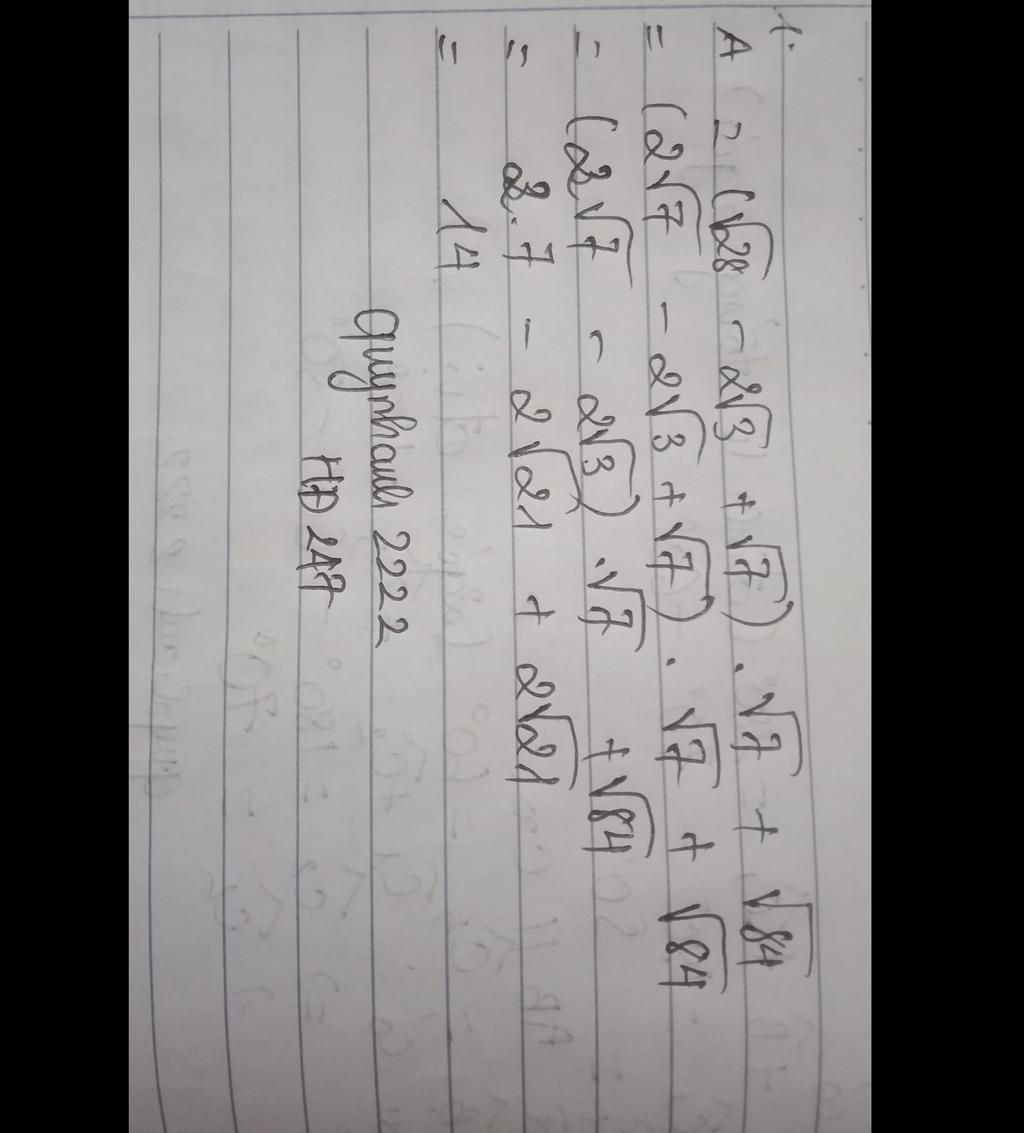 1.
A = (√28 - 2√3 + √7) . √7 + √84
= (2√7 - 2√3 + √7) . √7 + √84
= (2√7 - 2√3) .√7 + √84
= 2.7 - 2√21 + 2√21
= 14
quynhanh 222
HD 247